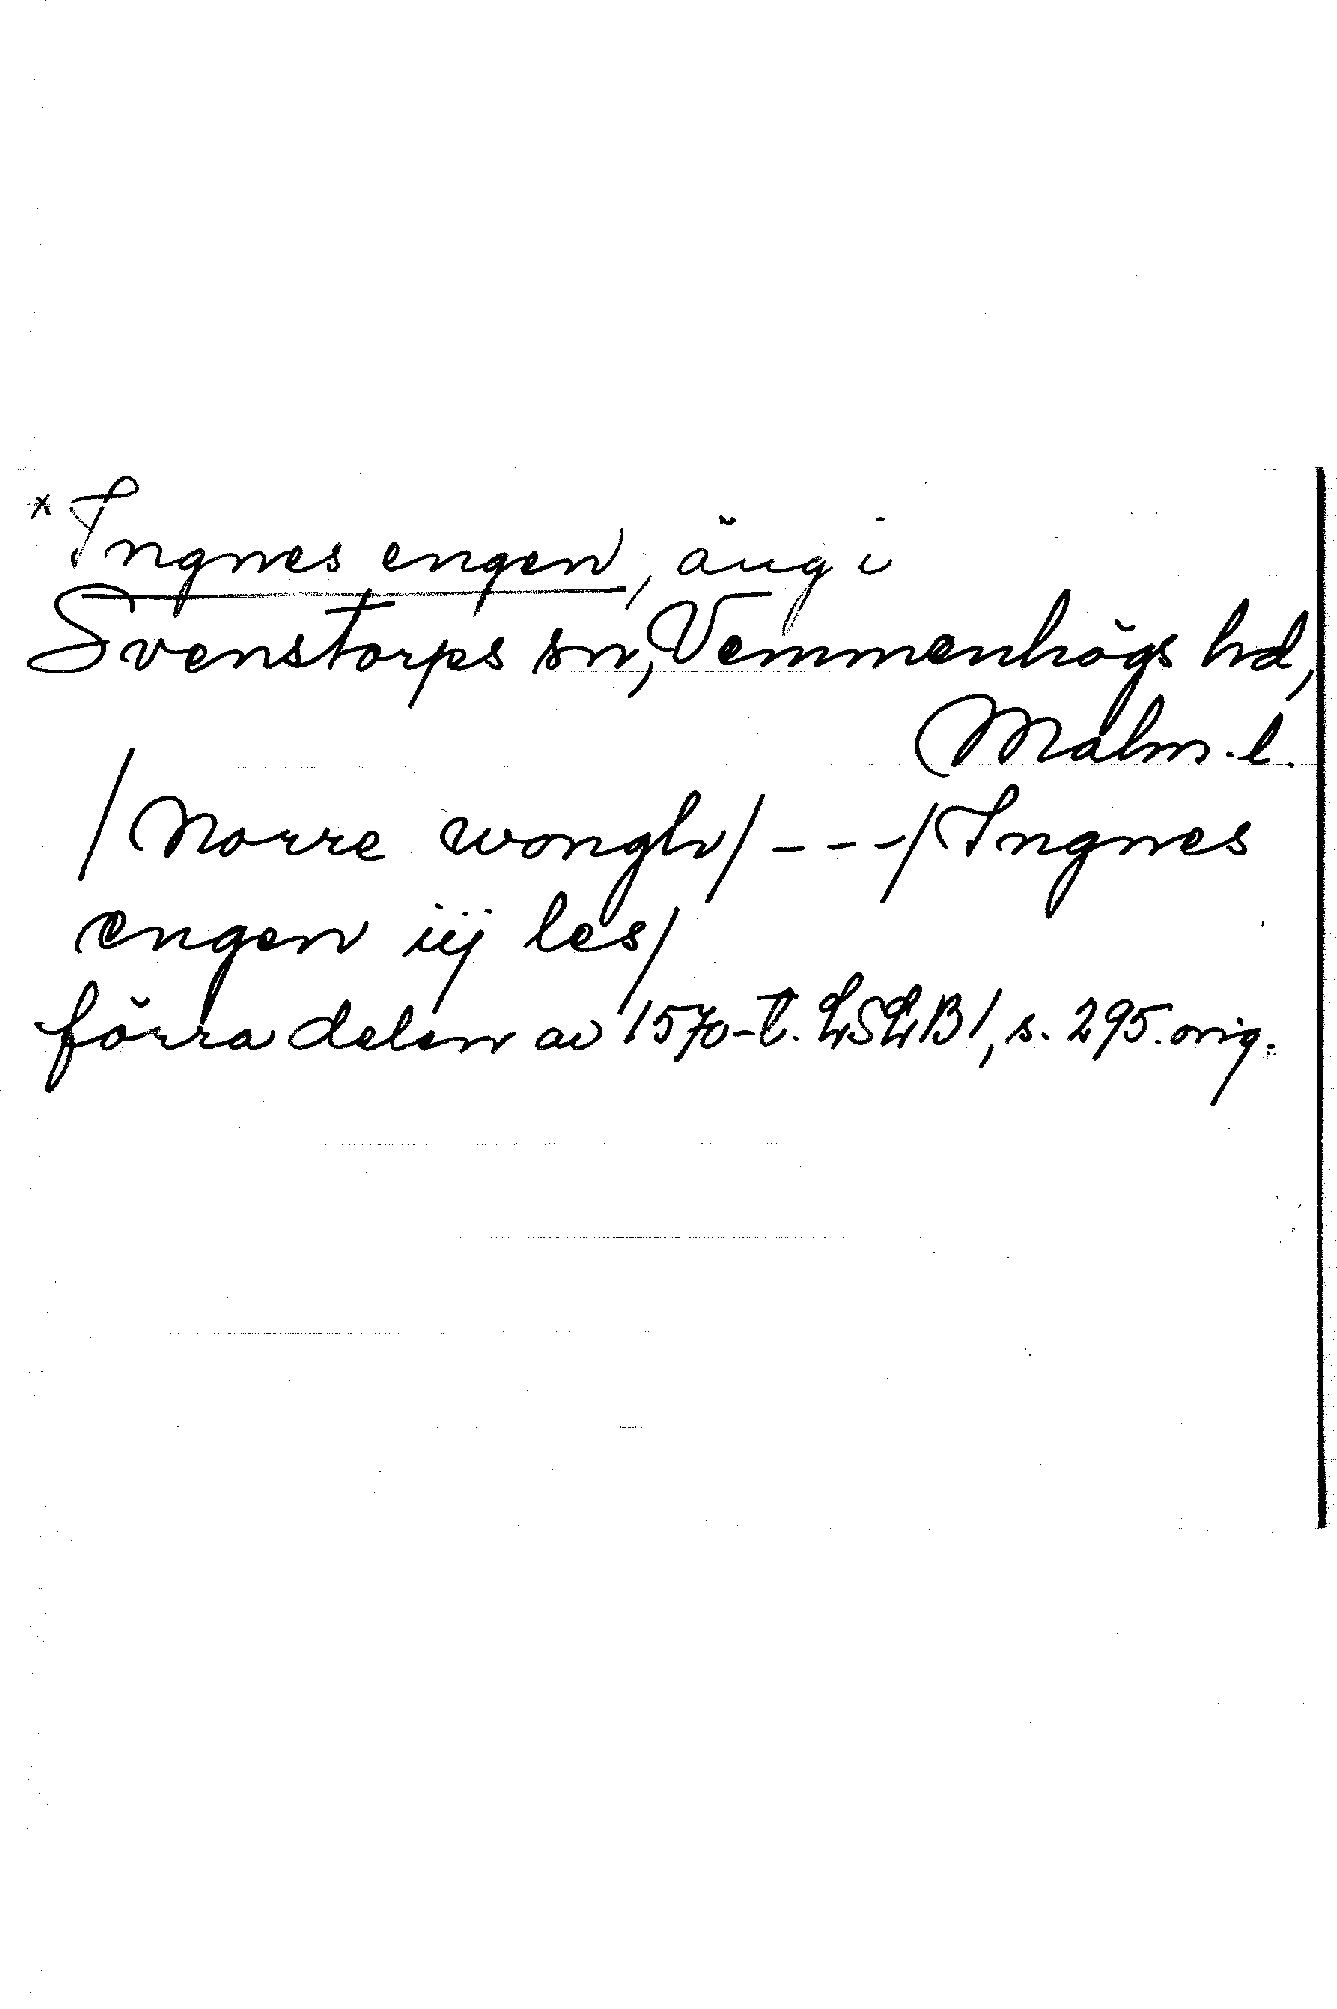 * Ingnes engen, äng i
Svenstorps sn, Vemmenhögs hd,
Malm. l.
/Norre wongh/ - - - /Ingnes
engen iij les/
förra delen av 1570-t. LSLB1, s. 295. orig.